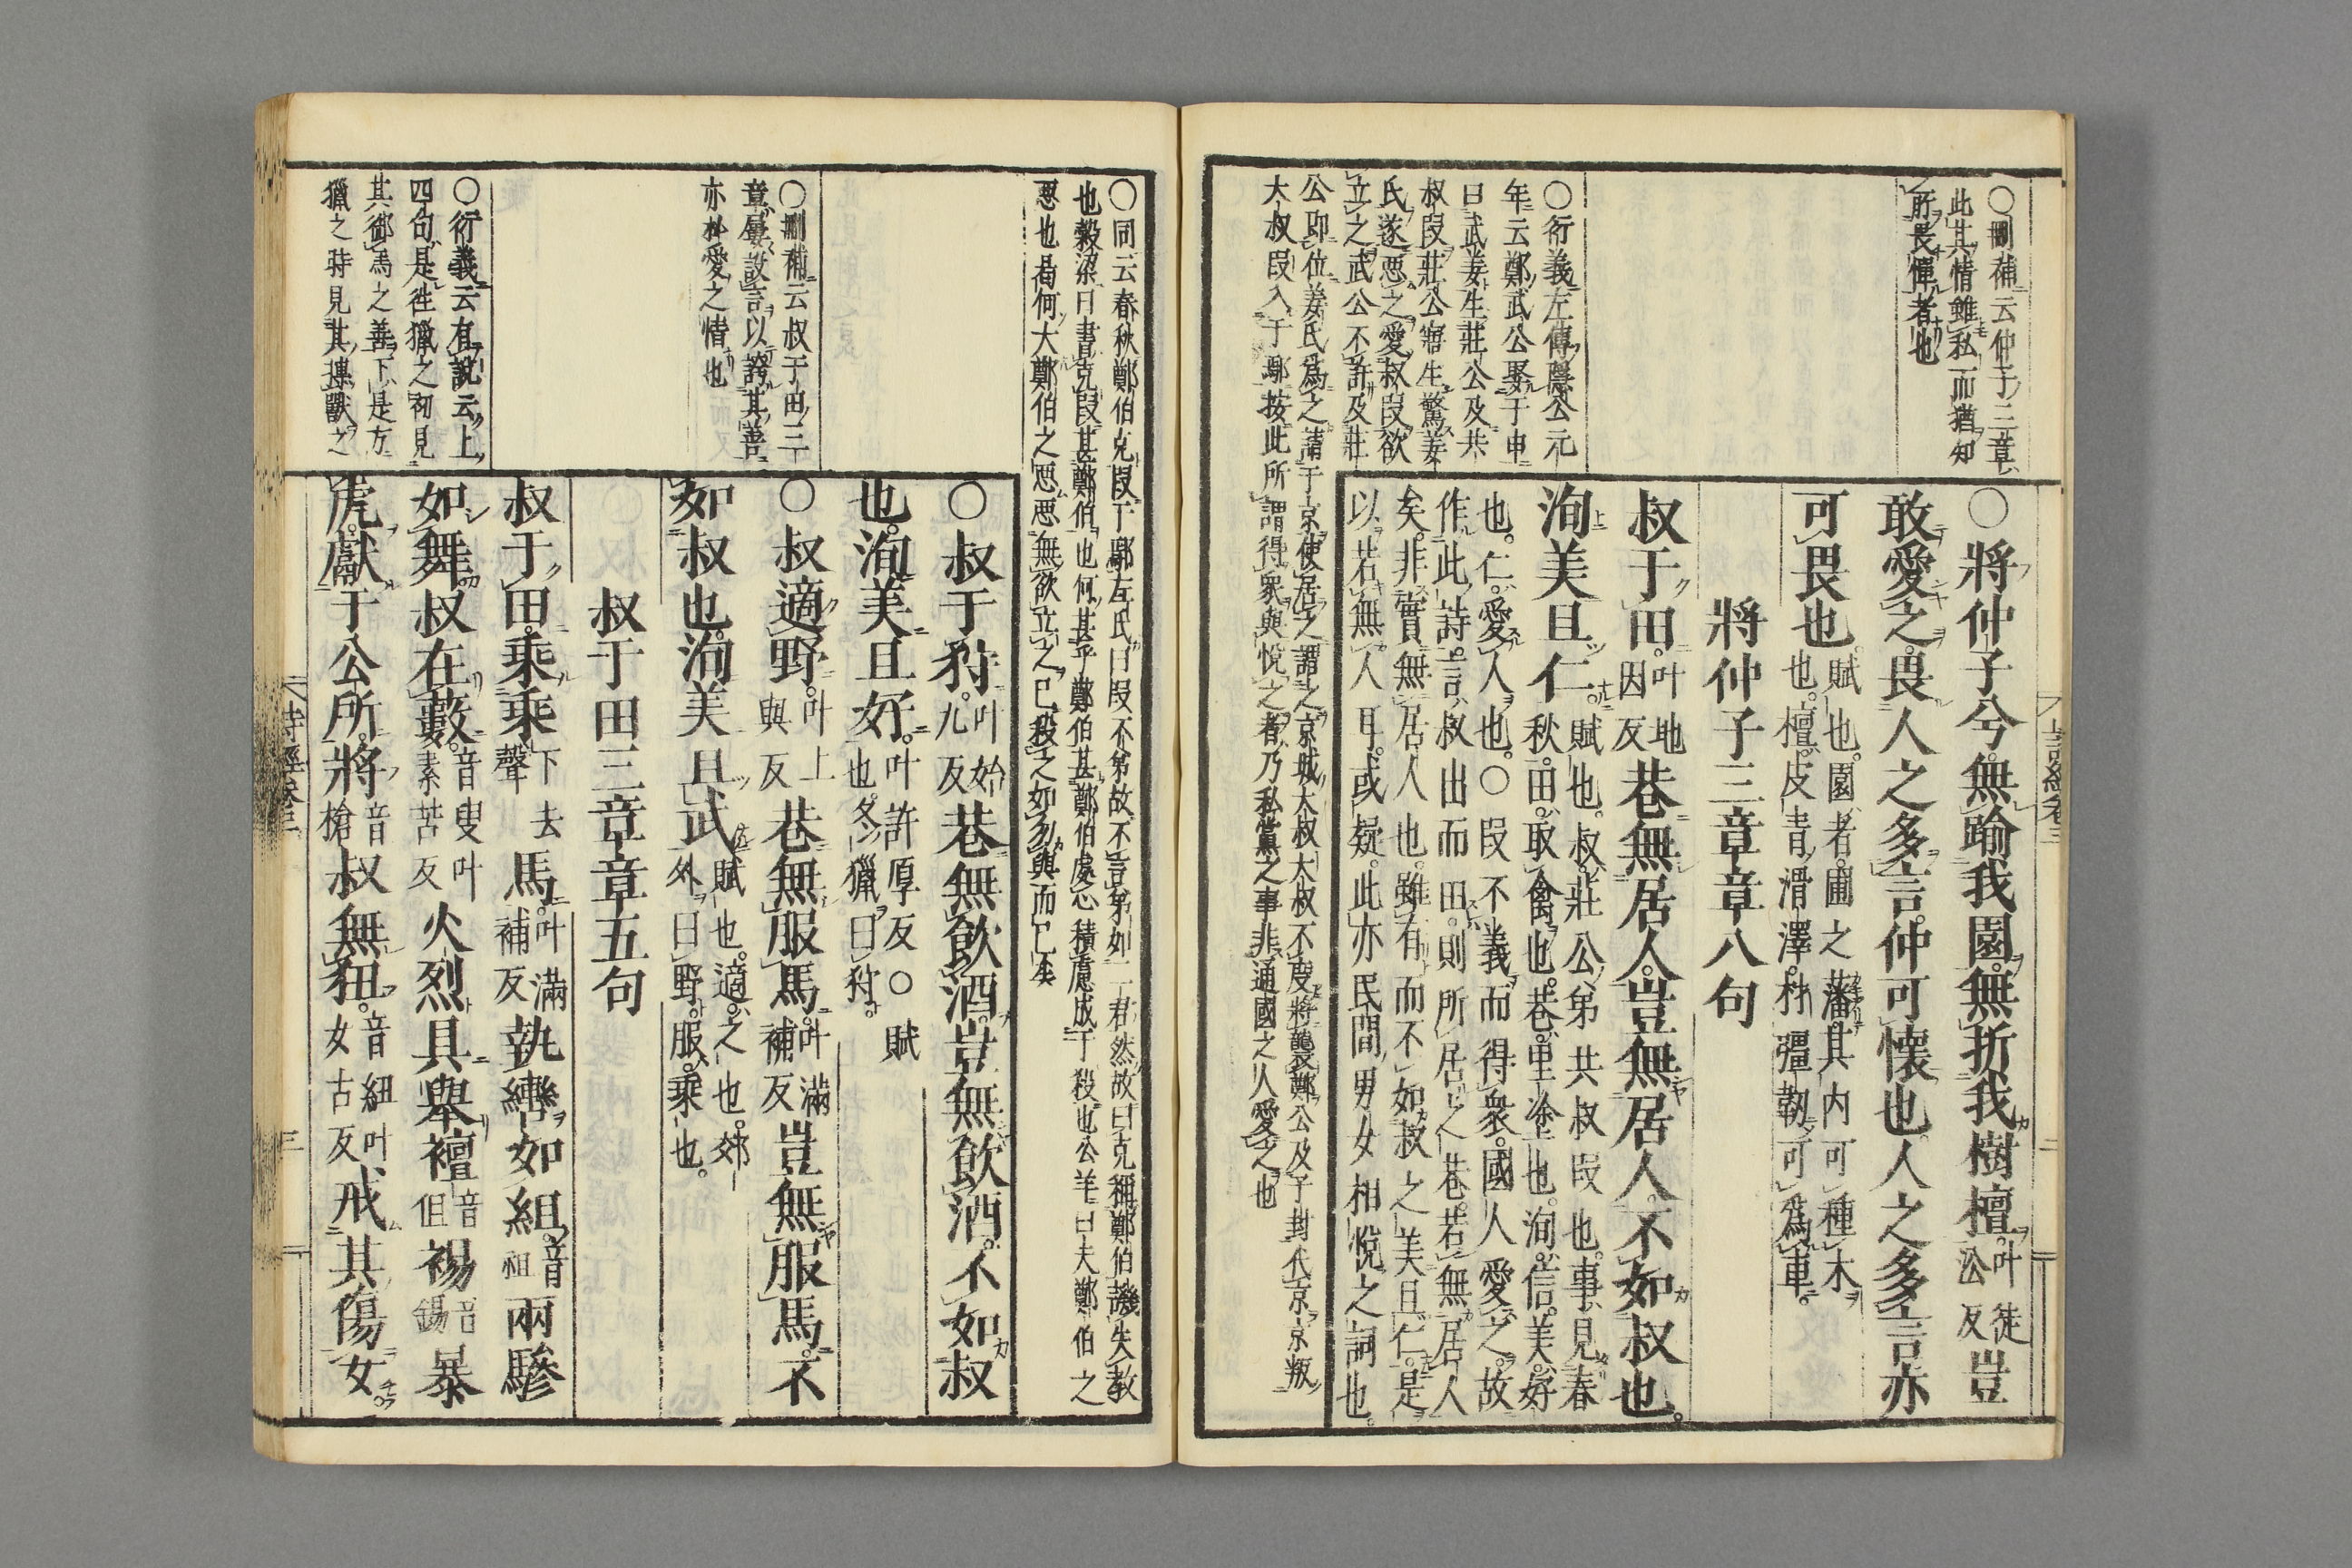 ○刪補云仲子三章
此其情雖私而猶知
所畏憚者也
○衍義左傳隱公元
年云鄭武公娶于申
曰武姜生莊公及共
叔段莊公寤生驚姜
氏遂惡之愛叔段欲
立之武公不許及莊
公即位姜氏爲之請于京使居之謂之京城大叔大叔不度將襲鄭公及子封代京京叛
大叔段入于鄢按此所謂得衆與悅之者乃私黨之事非通國之人愛之也
○將仲子兮無踰我園無折我樹檀叶徒㳂反豈
敢愛之畏人之多言仲可懷也人之多言亦
可畏也賦也園者圃之藩其内可種木
也檀皮青滑澤材彊韌可爲車
將仲子三章章八句
叔于田叶地因反巷無居人豈無居人不如叔也
洵美且仁賦也叔莊公弟共叔段也事見春
秋田取禽也巷里塗也洵信美好
也仁愛人也○段不義而得衆國人愛之故
作此詩言叔出而田則所居之巷若無居人
矣非實無居人也雖有而不如叔之美且仁是
以若無人耳或疑此亦民間男女相悅之詞也
詩經卷三
○同云春秋鄭伯克段于鄢左氏曰段不弟故不言弟如二君然故曰克稱鄭伯譏失教
也穀梁曰書克段甚鄭伯也何甚乎鄭伯甚鄭伯處心積慮成于殺也公羊曰夫鄭伯之
惡也曷何大鄭伯之惡惡無欲立之已殺之如勿與而已矣
○刪補云叔于田三
章屢設言以誇其善
亦材愛之情也
○衍義云有說云上
四句是徃獵之初見
其御馬之善下是方
獵之時見其搏獸之
○叔于狩叶始九反巷無飲酒豈無飲酒不如叔
也洵美且好叶許厚反○賦
也冬獵曰狩
○叔適野叶上與反巷無服馬叶滿補反豈無服馬不
如叔也洵美且武賦也適之也郊
外曰野服乘也
叔于田三章章五句
叔于田乘乘下去聲馬叶滿補反執轡如組音祖兩驂
如舞叔在藪音叟叶素苦反火烈具舉襢音但裼音錫暴
虎獻于公所將音槍叔無狃音紐叶女古反戒其傷女
詩經卷三
三